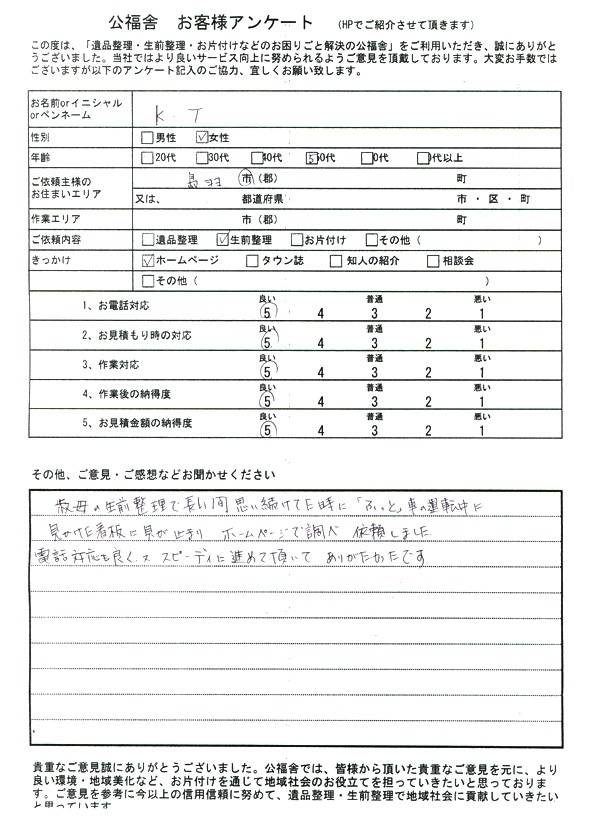 公福舎 お客様アンケート (HPでご紹介させて頂きます)
この度は、「遺品整理・生前整理・お片付けなどのお困りごと解決の公福舎」をご利用いただき、誠にありがと
うございました。当社ではより良いサービス向上に努められるようご意見を頂戴しております。大変お手数では
ございますが以下のアンケート記入のご協力、宜しくお願い致します。
お名前orイニシャル
orペンネーム K T
性別 男性 女性
年齢 20代 30代 40代 50代 0代 代以上
ご依頼主様の
お住まいエリア 鳥羽 市(郡) 町
又は、 都道府県 市・区・町
作業エリア 市(郡) 町
ご依頼内容 遺品整理 生前整理 お片付け その他( )
きっかけ ホームページ タウン誌 知人の紹介 相談会
その他( )
1、お電話対応 良い 5 4 普通 3 2 悪い 1
2、お見積もり時の対応 良い 5 4 普通 3 2 悪い 1
3、作業対応 良い 5 4 普通 3 2 悪い 1
4、作業後の納得度 良い 5 4 普通 3 2 悪い 1
5、お見積金額の納得度 良い 5 4 普通 3 2 悪い 1
その他、ご意見・ご感想などお聞かせください
叔母の生前整理で長い間思い続けてた時に「ふっと」車の運転中に
見かけた看板に目が止まり ホームページで調べ 依頼しました
電話対応も良く又スピーディに進めて頂いて ありがたかったです
貴重なご意見誠にありがとうございました。公福舎では、皆様から頂いた貴重なご意見を元に、より
良い環境・地域美化など、お片付けを通じて地域社会のお役立てを担っていきたいと思っておりま
す。ご意見を参考に今以上の信用信頼に努めて、遺品整理・生前整理で地域社会に貢献していきたい
と思っています